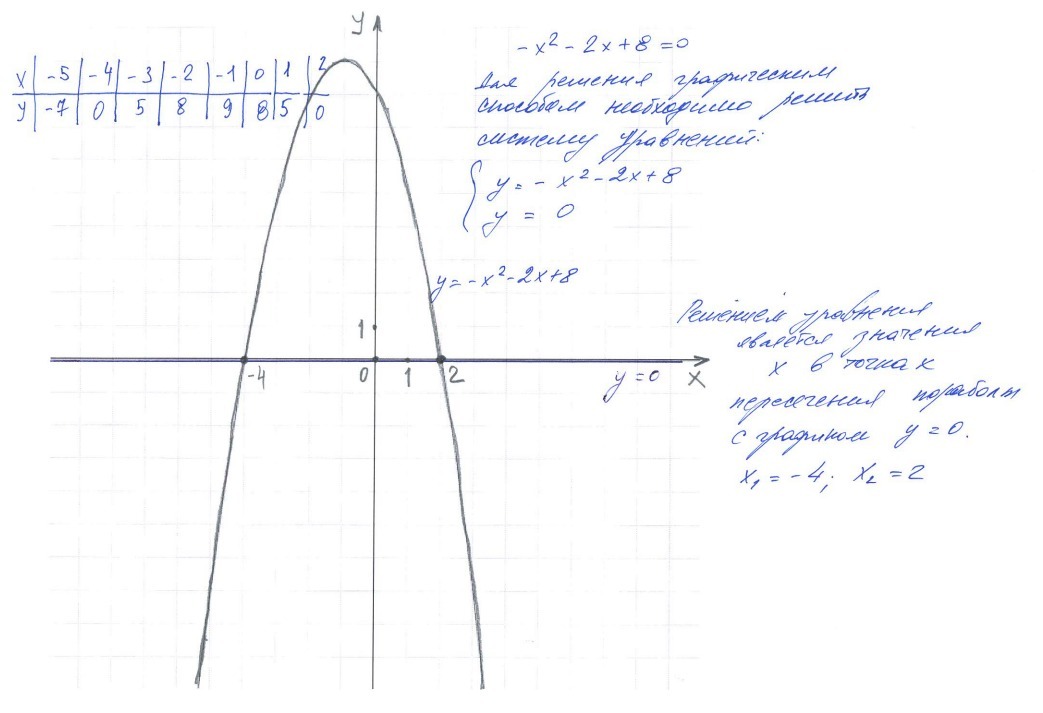 y
x | -5 | -4 | -3 | -2 | -1 | 0 | 1 | 2
y | -7 | 0 | 5 | 8 | 9 | 8 | 5 | 0
-x² - 2x + 8 = 0
Для решения графическим
способом необходимо решить
систему уравнений:
y = - x² - 2x + 8
y = 0
y = -x² - 2x + 8
1
-4 0 1 2 y = 0 x
Решением уравнения
является значения
x в точках
пересечения параболы
с графиком y = 0.
x₁ = -4; x₂ = 2